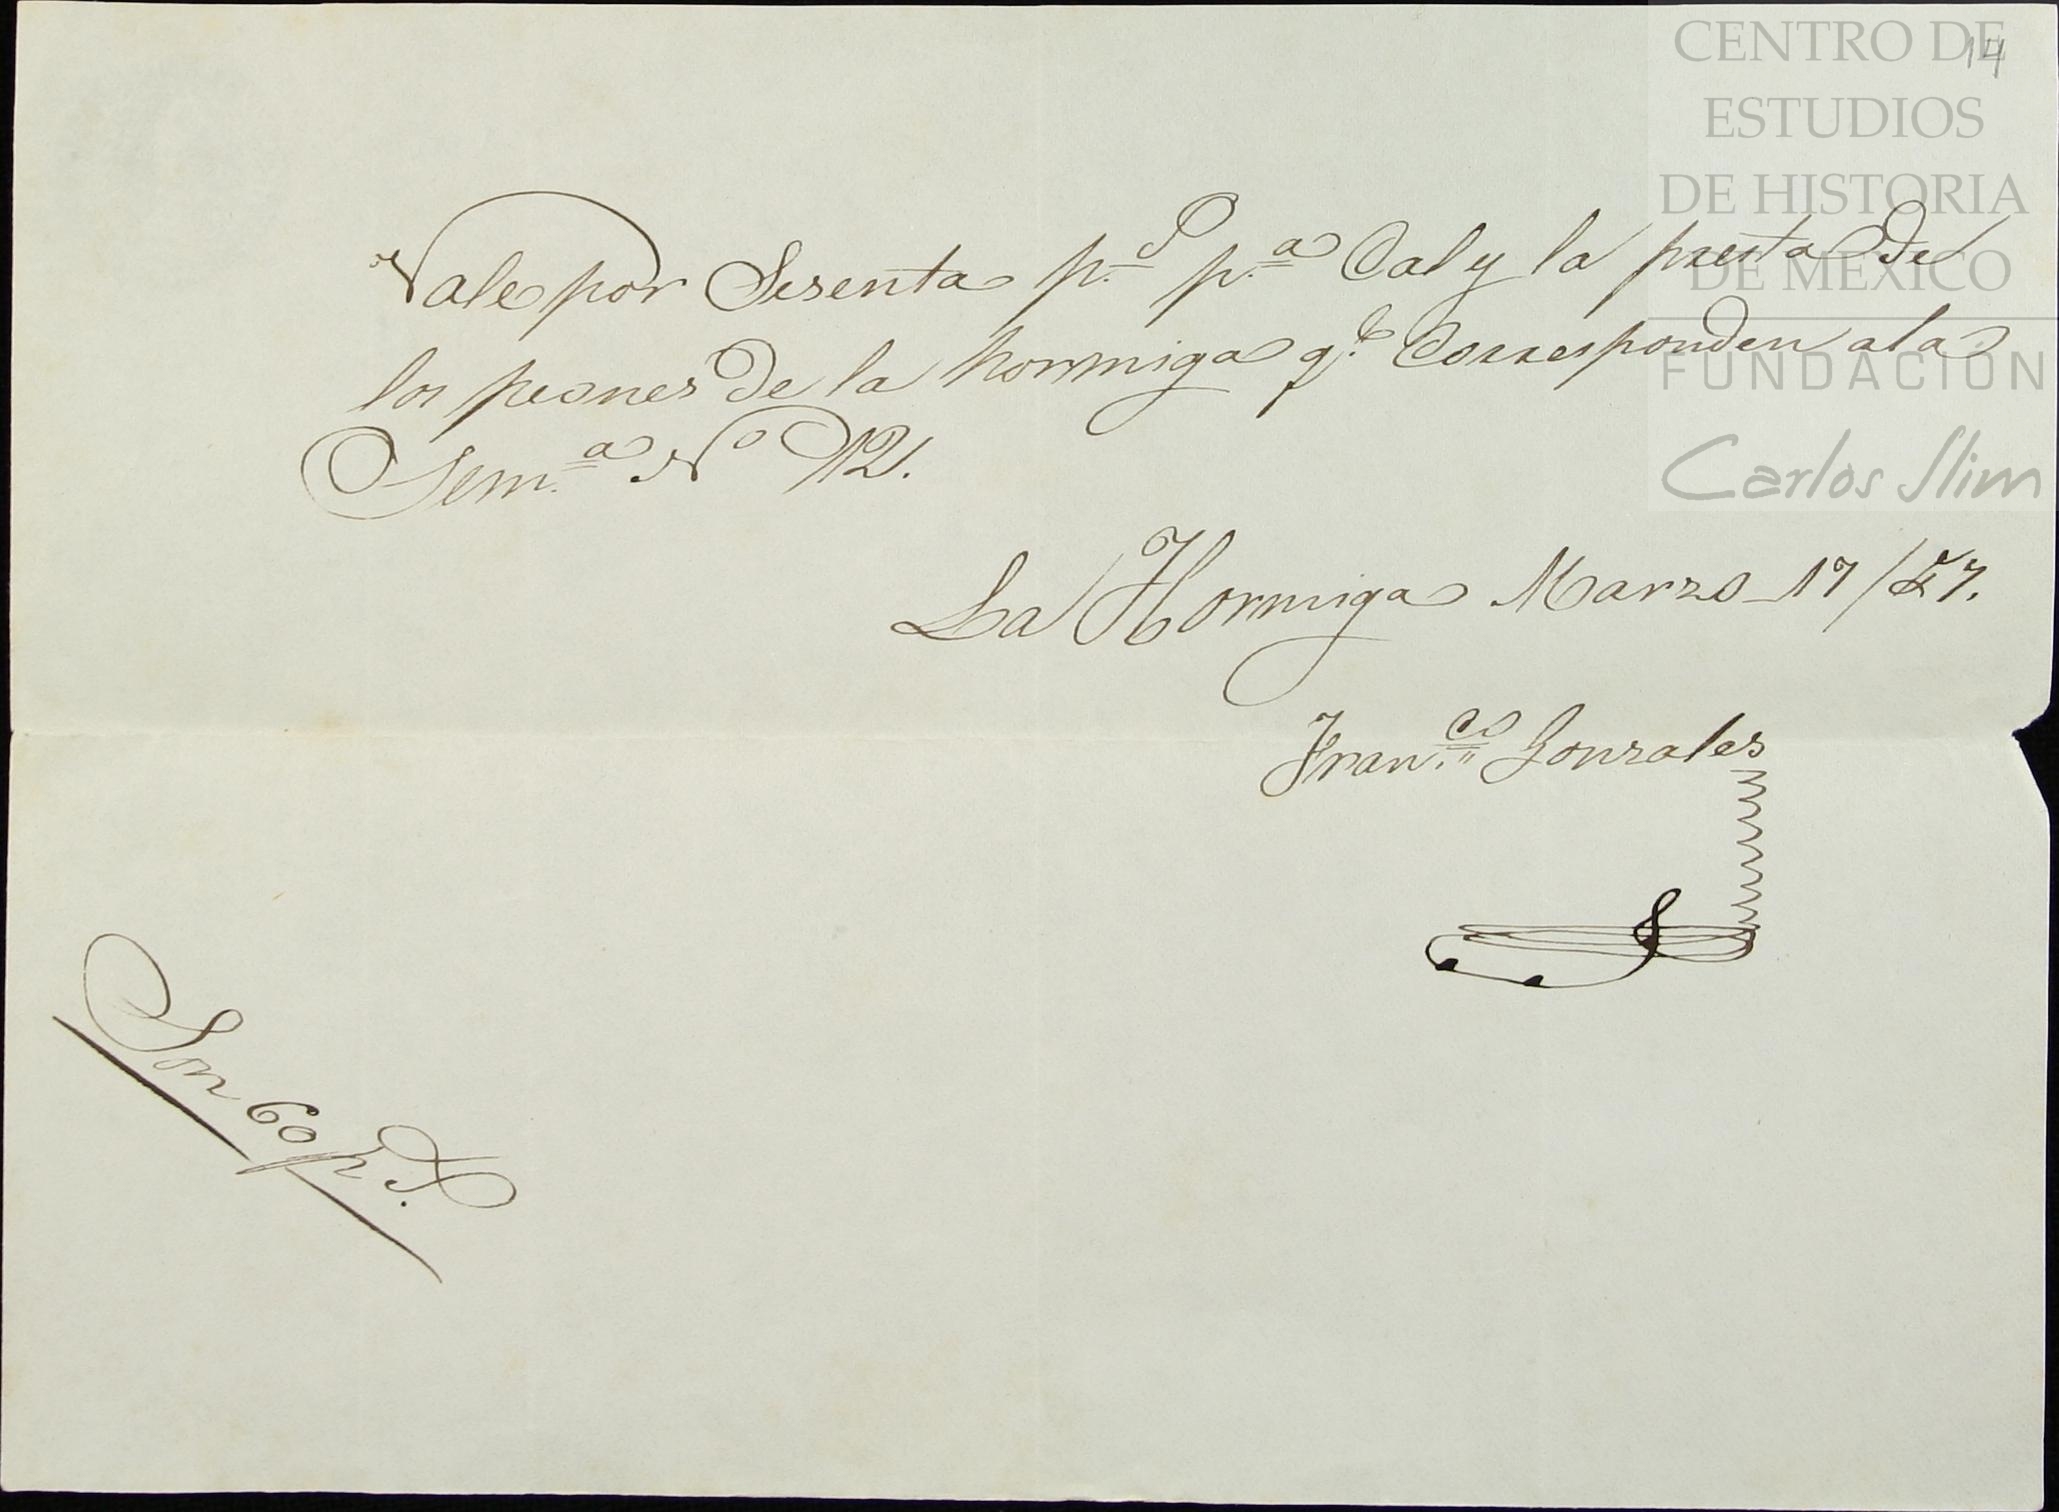 14
CENTRO DE
ESTUDIOS
DE HISTORIA
DE MÉXICO
FUNDACIÓN
Carlos Slim
Vale por Sesenta p.s p.a Cal y la presta de
los peones de la hormiga q.e Corresponden a la
Sem.a No 12.
La Hormiga Marzo 17/
Fran.co Gonzales
Son 60 p.s